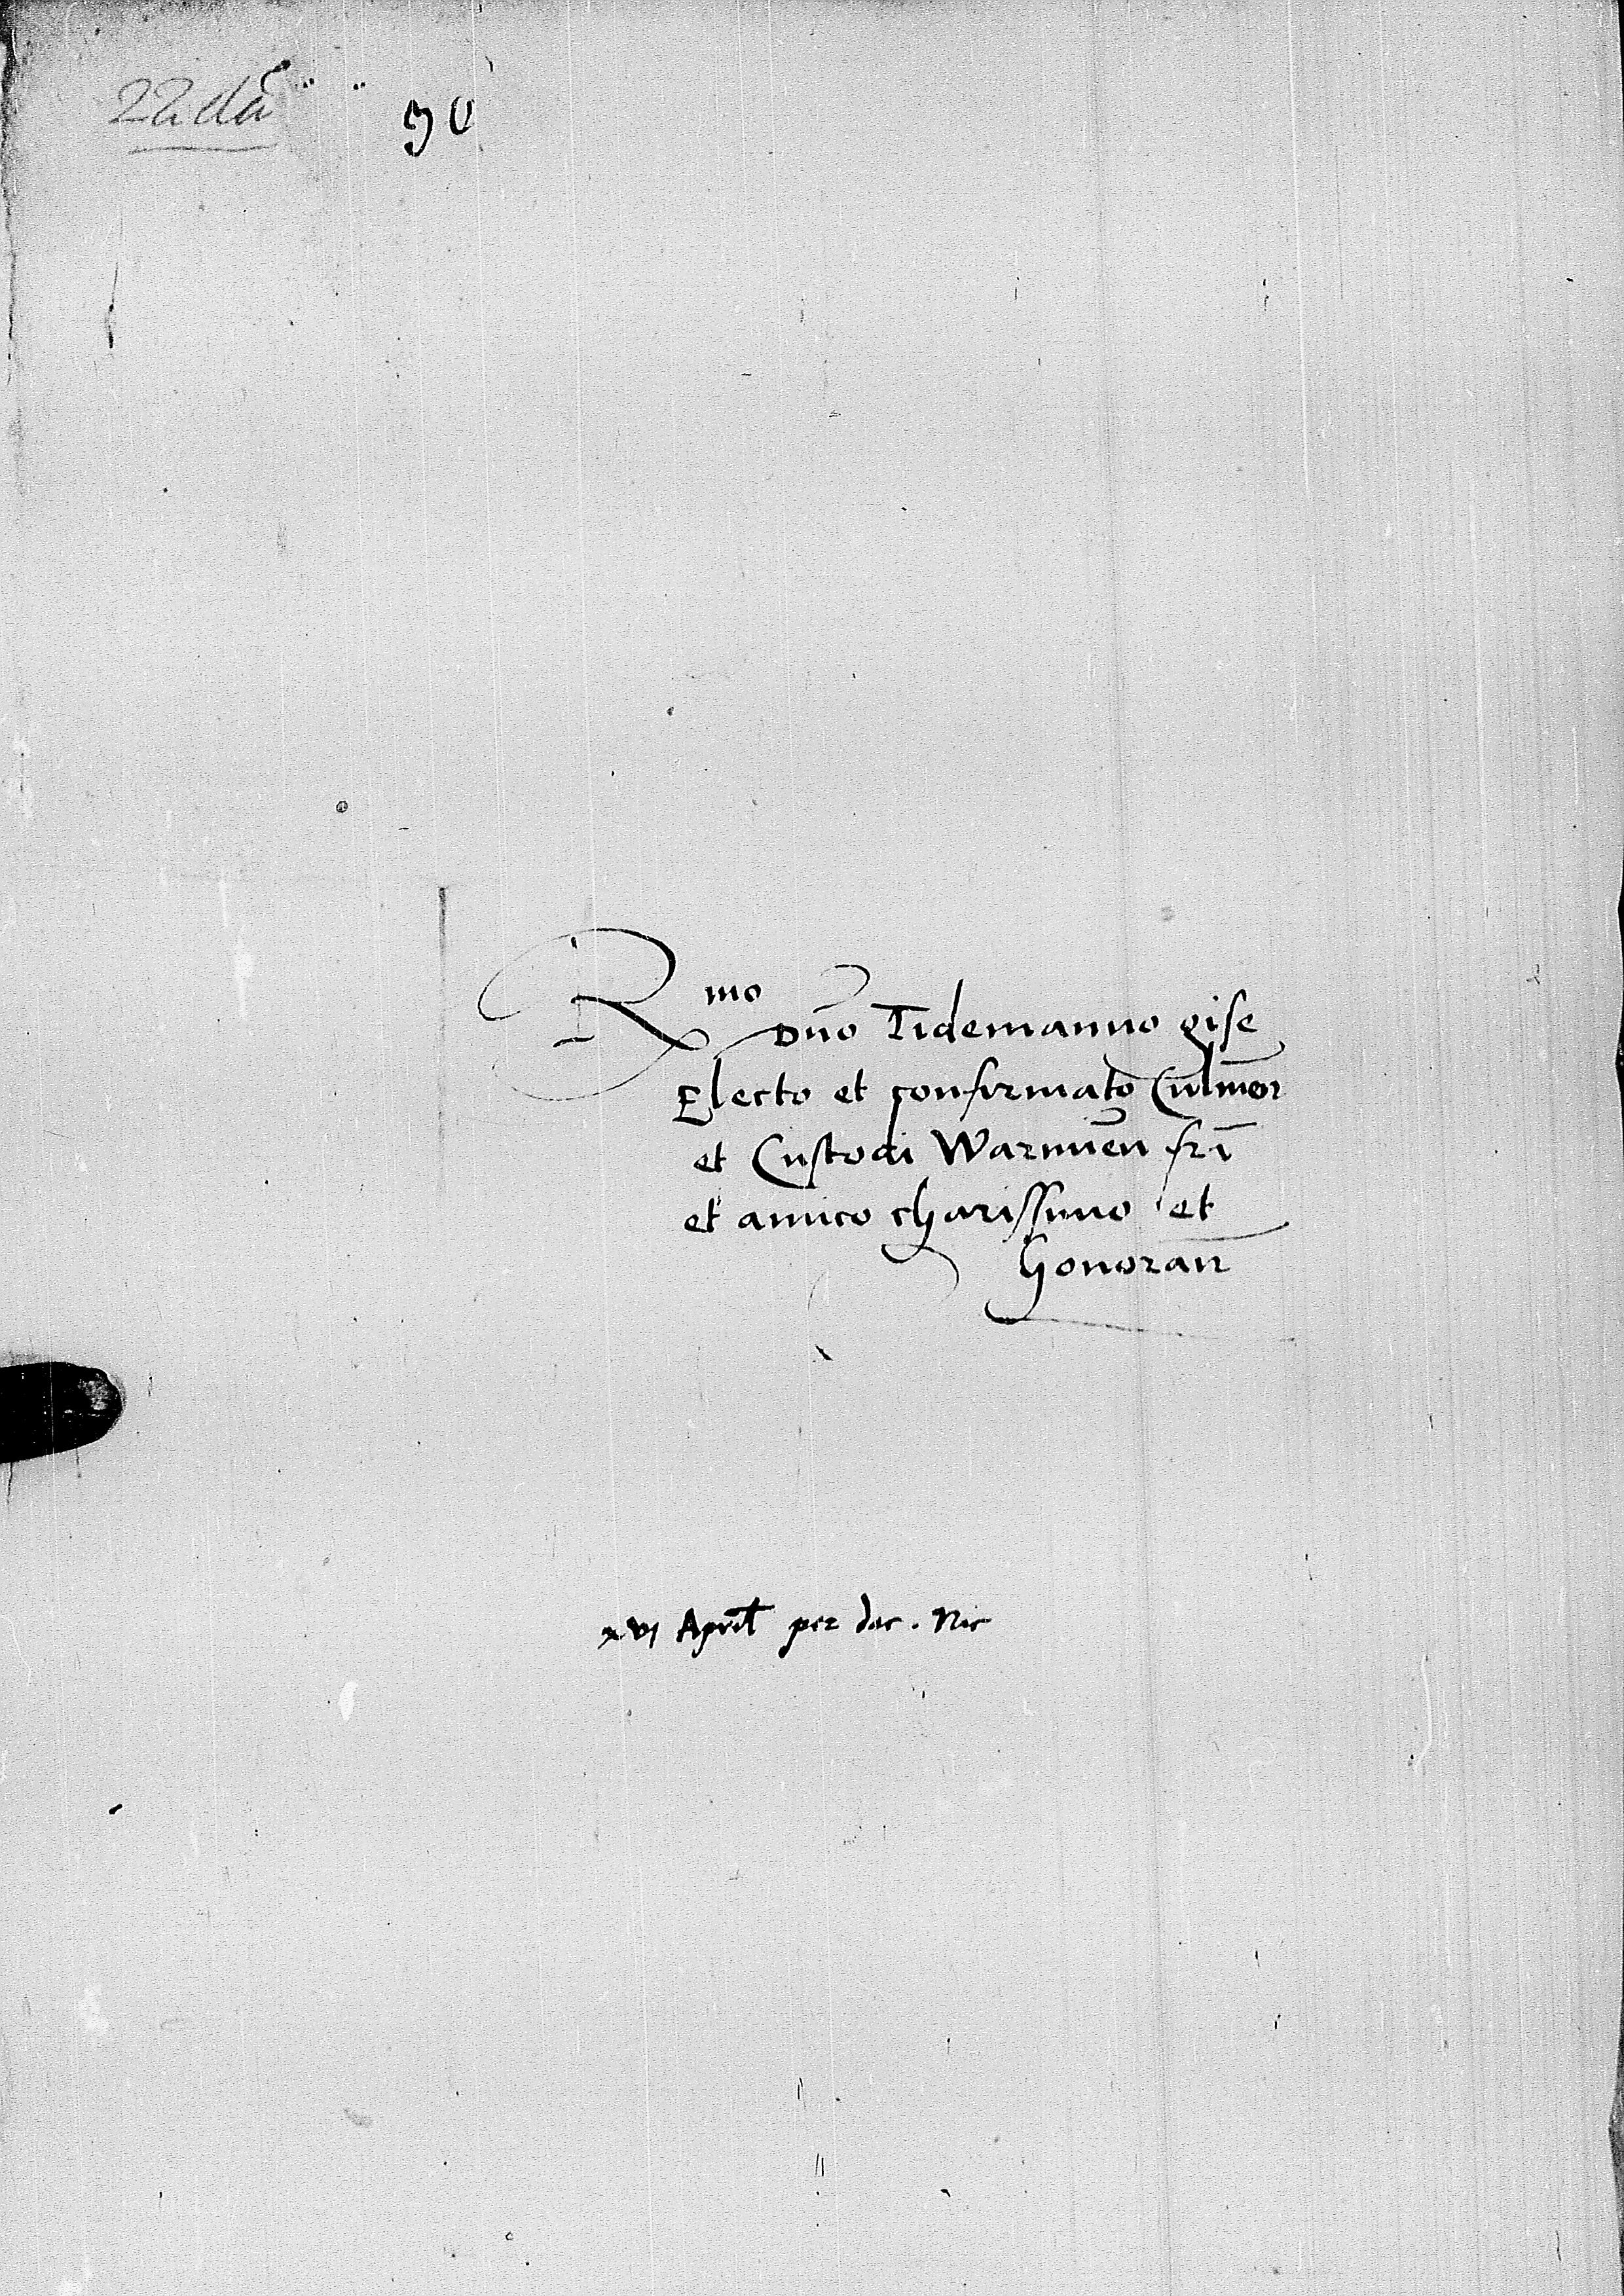 90
Rmo
Dno Tidemanno gise
Electo et confirmato Culmen
et Custodi Warmien fri
et amico charissimo et
honoran
xvi April per doc. Nic